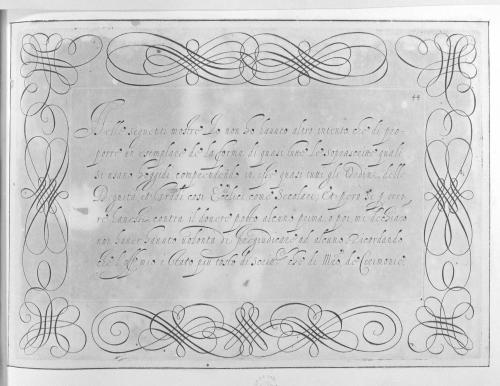 44
Nelle seguenti mostre Io non ho hauuto altro intento che di pro-
porre un esemplare de la forma di quasi tutte le Soprascritte quali
si usano hoggidi comprendendo in esse quasi tutti gli Ordini, delle
Dignita et Gradi cosi Eccl.ici come Secolari; Et pero se p errore
hauessi contra il douere posto alcuno prima, o poi, mi dechiaro
non hauer hauuto uolonta di pregiudicare ad alcuno, Ricordando
che l' mio e stato piu tosto di che di M.ro de Cerimonie